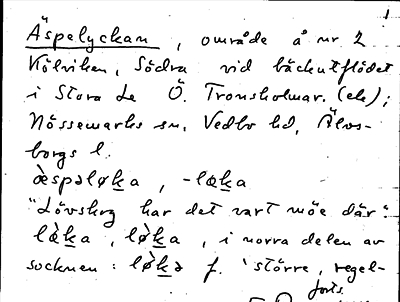 1
Äspelyckan, område å nr 2
Kölviken, Södra vid bäckutflödet
i Stora Le Ö. Tronsholmar. (ek);
Nössemarks sn, Vedbo hd, Älvs-
borgs l.
æ̀spəløka, -løka
"Lövskog har det vart möe där":
lø̀ka, lø̀ka, i norra delen av
socknen: lø̀kə f. 'större, regel-
forts.